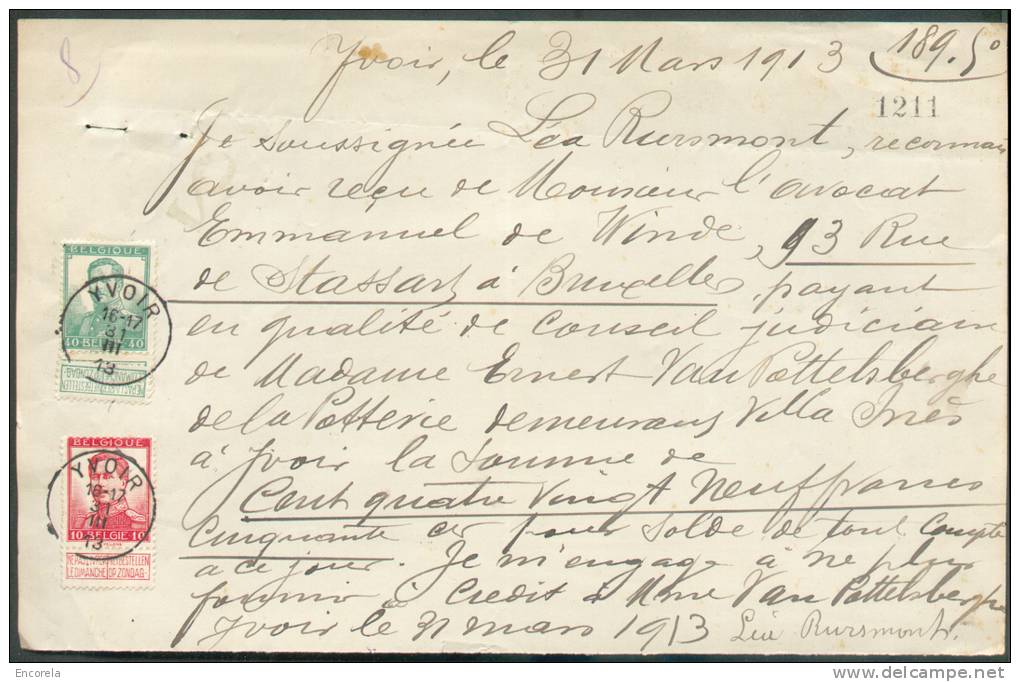 8
Yvoir, le 31 Mars 1913
189.50
1211
Je soussignée Léa Rursmont, reconnais
avoir reçu de Monsieur l'avocat
Emmanuel de Winde, 93 Rue
de Stassart à Bruxelles, payant
en qualité de Conseil judiciaire
de Madame Ernest Van Pottelsberghe
de la Potterie demeurant Villa Inès
à Yvoir la somme de
Cent quatre vingt Neuf francs
Cinquante cs pour solde de tout Compte
à ce jour. Je m'engage à ne plus
fournir à Crédit à Mme Van Pottelsberghe
Yvoir le 31 mars 1913 Léa Rursmont.
BELGIQUE
40 BELGIË 40
YVOIR
16-17
31
III
13
BELGIQUE
10 BELGIË 10
YVOIR
16-17
31
III
13
NE PAS LIVRER NIET BESTELLEN
LE DIMANCHE OP ZONDAG
Encorela
www.delcampe.net